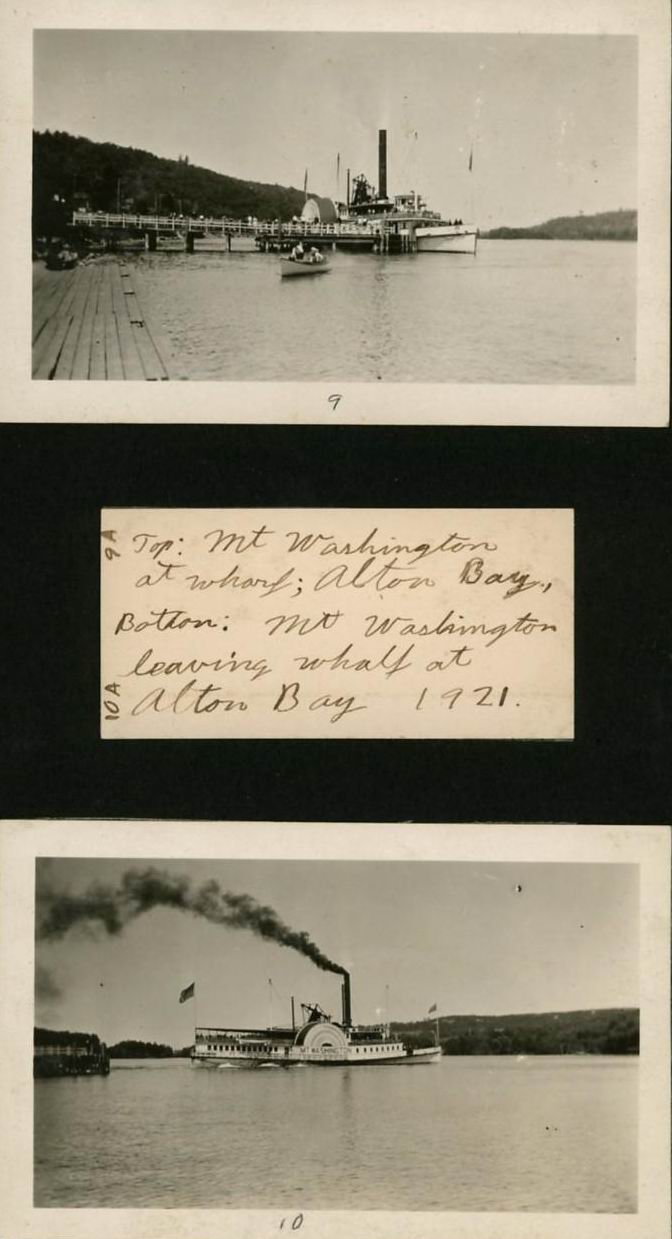 9
9A
Top: Mt Washington
at wharf; Alton Bay.,
Bottom: Mt Washington
leaving whalf at
10A
Alton Bay 1921.
MT WASHINGTON
10